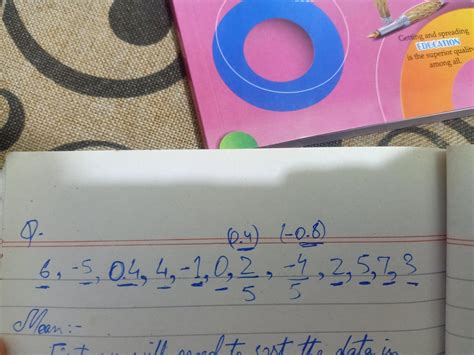 Getting and spreading
EDUCATION
is the superior quality
among all.
Q.
(0.4) (-0.8)
6, -5, 0.4, 4, -1, 0, 2/5, -4/5, 2, 5, 7, 3
Mean:-
First we will need to sort the data in